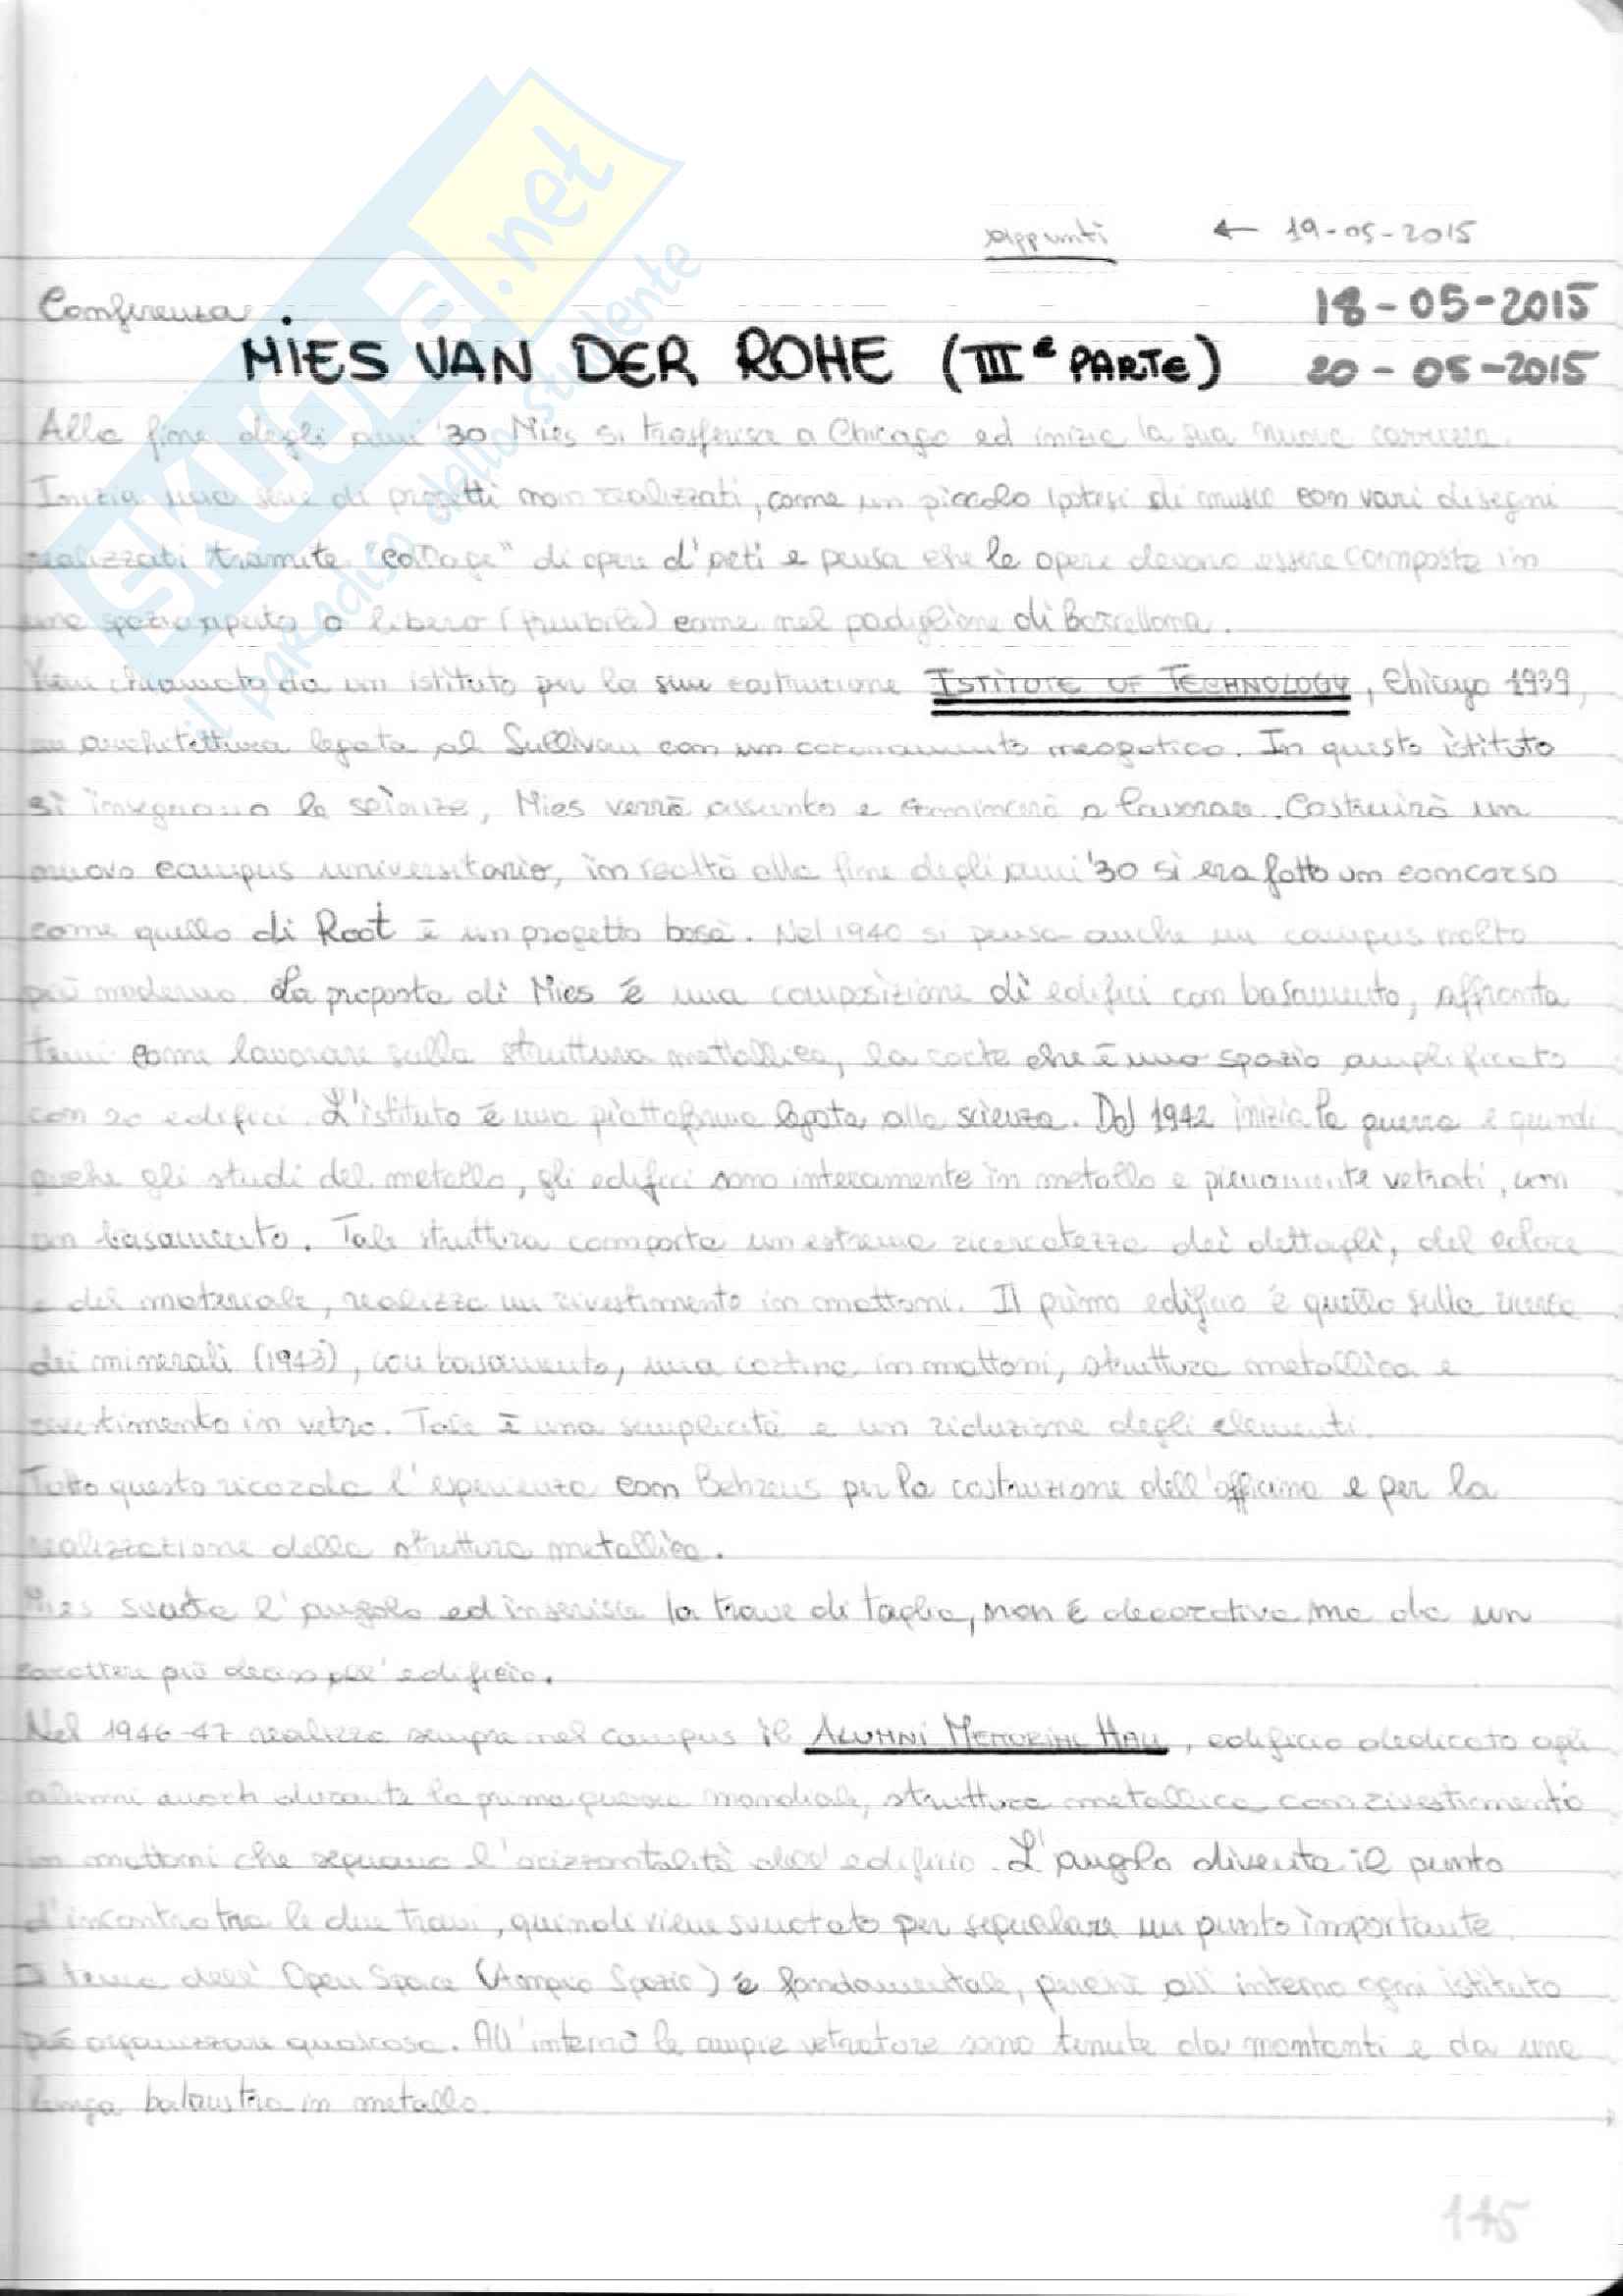 appunti ← 19-05-2015
Conferenza
18-05-2015
MIES VAN DER ROHE (IIIª PARTE)
20-05-2015
Alla fine degli anni '30 Mies si trasferisce a Chicago ed inizia la sua nuova carriera.
Inizia una serie di progetti non realizzati, come un piccolo ipotesi di museo con vari disegni
realizzati tramite "collage" di opere d'arti e pensa che le opere devono essere composte in
uno spazio aperto o libero (fruibile) come nel padiglione di Barcellona.
Viene chiamato da un istituto per la sua costruzione ISTITUTE OF TECHNOLOGY, Chicago 1939,
un architettura legata al Sullivan con un coronamento neogotico. In questo istituto
si insegnano le scienze, Mies verrà assunto e comincerà a lavorare. Costruirà un
nuovo campus universitario, in realtà alla fine degli anni '30 si era fatto un concorso
come quello di Root è un progetto base. Nel 1940 si pensa anche un campus molto
più moderno. La proposta di Mies è una composizione di edifici con basamento, affronta
temi come lavorare sulla struttura metallica, la corte che è uno spazio amplificato
con 20 edifici. L'istituto è una piattaforma legata alla scienza. Dal 1942 inizia la guerra e quindi
anche gli studi del metallo, gli edifici sono interamente in metallo e pienamente vetrati, con
un basamento. Tale struttura comporta un estrema ricercatezza dei dettagli, del colore
e del materiale, realizza un rivestimento in mattoni. Il primo edificio è quello sulla ricerca
dei minerali (1943), con basamento, una cortina in mattoni, struttura metallica e
rivestimento in vetro. Tale è una semplicità e un riduzione degli elementi.
Tutto questo ricorda l'esperienza con Behrens per la costruzione dell'officina e per la
realizzazione della struttura metallica.
Mies svuota l'angolo ed inserisce la trave di taglio, non è decorativa ma da un
carattere più deciso all'edificio.
Nel 1946-47 realizza sempre nel campus il ALUMNI MEMORIAL HALL, edificio dedicato agli
alunni morti durante la prima guerra mondiale, struttura metallica con rivestimento
in mattoni che seguono l'orizzontalità dell'edificio. L'angolo diventa il punto
d'incontro tra le due travi, quindi viene svuotato per segnalare un punto importante.
Il tema dell'Open Space (Ampio Spazio) è fondamentale, perchè all'interno ogni istituto
può organizzare qualcosa. All'interno le ampie vetrature sono tenute da montanti e da una
lunga balaustra in metallo.
115
SKUOLA.net
il paradiso dello studente